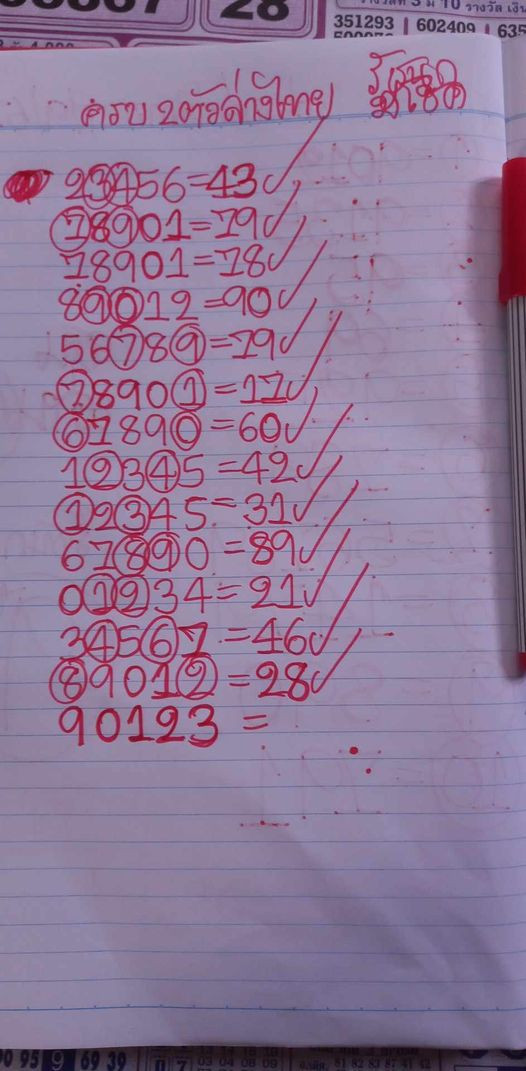 28
351293 602409 635
ครบ 2ตัวล่างไทย
23456=43
78901=79
78901=78
89012=90
56789=79
78901=17
67890=60
12345=42
12345=31
67890=89
01234=21
34567=46
89012=28
90123=
90 95 9 69 39